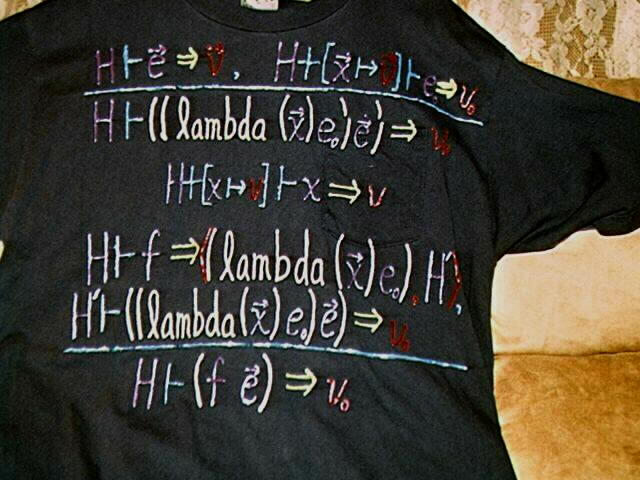 H ⊢ e⃗ ⇒ v⃗, H+[x⃗ ↦ v⃗] ⊢ e₀ ⇒ v₀
H ⊢ ((lambda (x⃗) e₀) e⃗) ⇒ v₀
H+[x ↦ v] ⊢ x ⇒ v
H ⊢ f ⇒ ⟨(lambda (x⃗) e₀), H′⟩,
H′ ⊢ ((lambda (x⃗) e₀) e⃗) ⇒ v₀
H ⊢ (f e⃗) ⇒ v₀